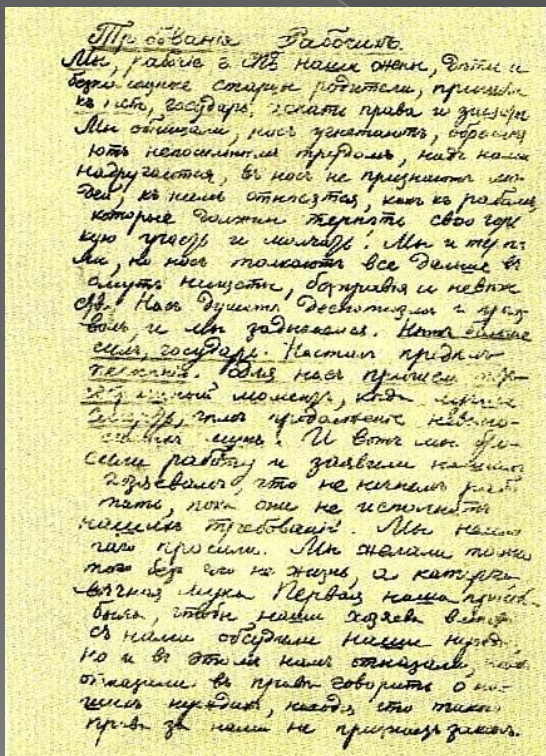 Требованія Рабочихъ.
Мы, рабочіе г. СПБ наши жены, дѣти и
старцы родители, пришли
къ государь, искати права и защиты
Мы обнищали, насъ угнетаютъ, обременя
ютъ непосильнымъ трудомъ, надъ нами
надругаются, въ насъ не признаютъ лю
дей, къ намъ относятся, какъ къ рабамъ,
которые должны терпѣть свою горь
кую участь и молчать! Мы и терпѣ
ли, но насъ толкаютъ все дальше въ
омутъ нищеты, безправья и невѣже
ства. Насъ душитъ деспотизмъ и произ
волъ, и мы задыхаемся. Нѣтъ больше
силъ, государь. Насталъ предѣлъ
терпѣнію. Для насъ пришелъ
моментъ, когда
смерть, чѣмъ продолженіе невыно
мукъ! И вотъ мы бро
сили работу и заявили нашимъ
хозяевамъ, что не начнемъ рабо
тать, пока они не исполнятъ
нашихъ требованій. Мы немно
гаго просили. Мы желали только
того безъ чего не жизнь, а каторга
вѣчная мука Первая наша просьба
была, чтобы наши хозяева вмѣстѣ
съ нами обсудили наши нужды,
но и въ этомъ намъ отказали,
отказали въ правѣ говорить о на
шихъ нуждахъ, находя что такого
права за нами не признаетъ законъ.